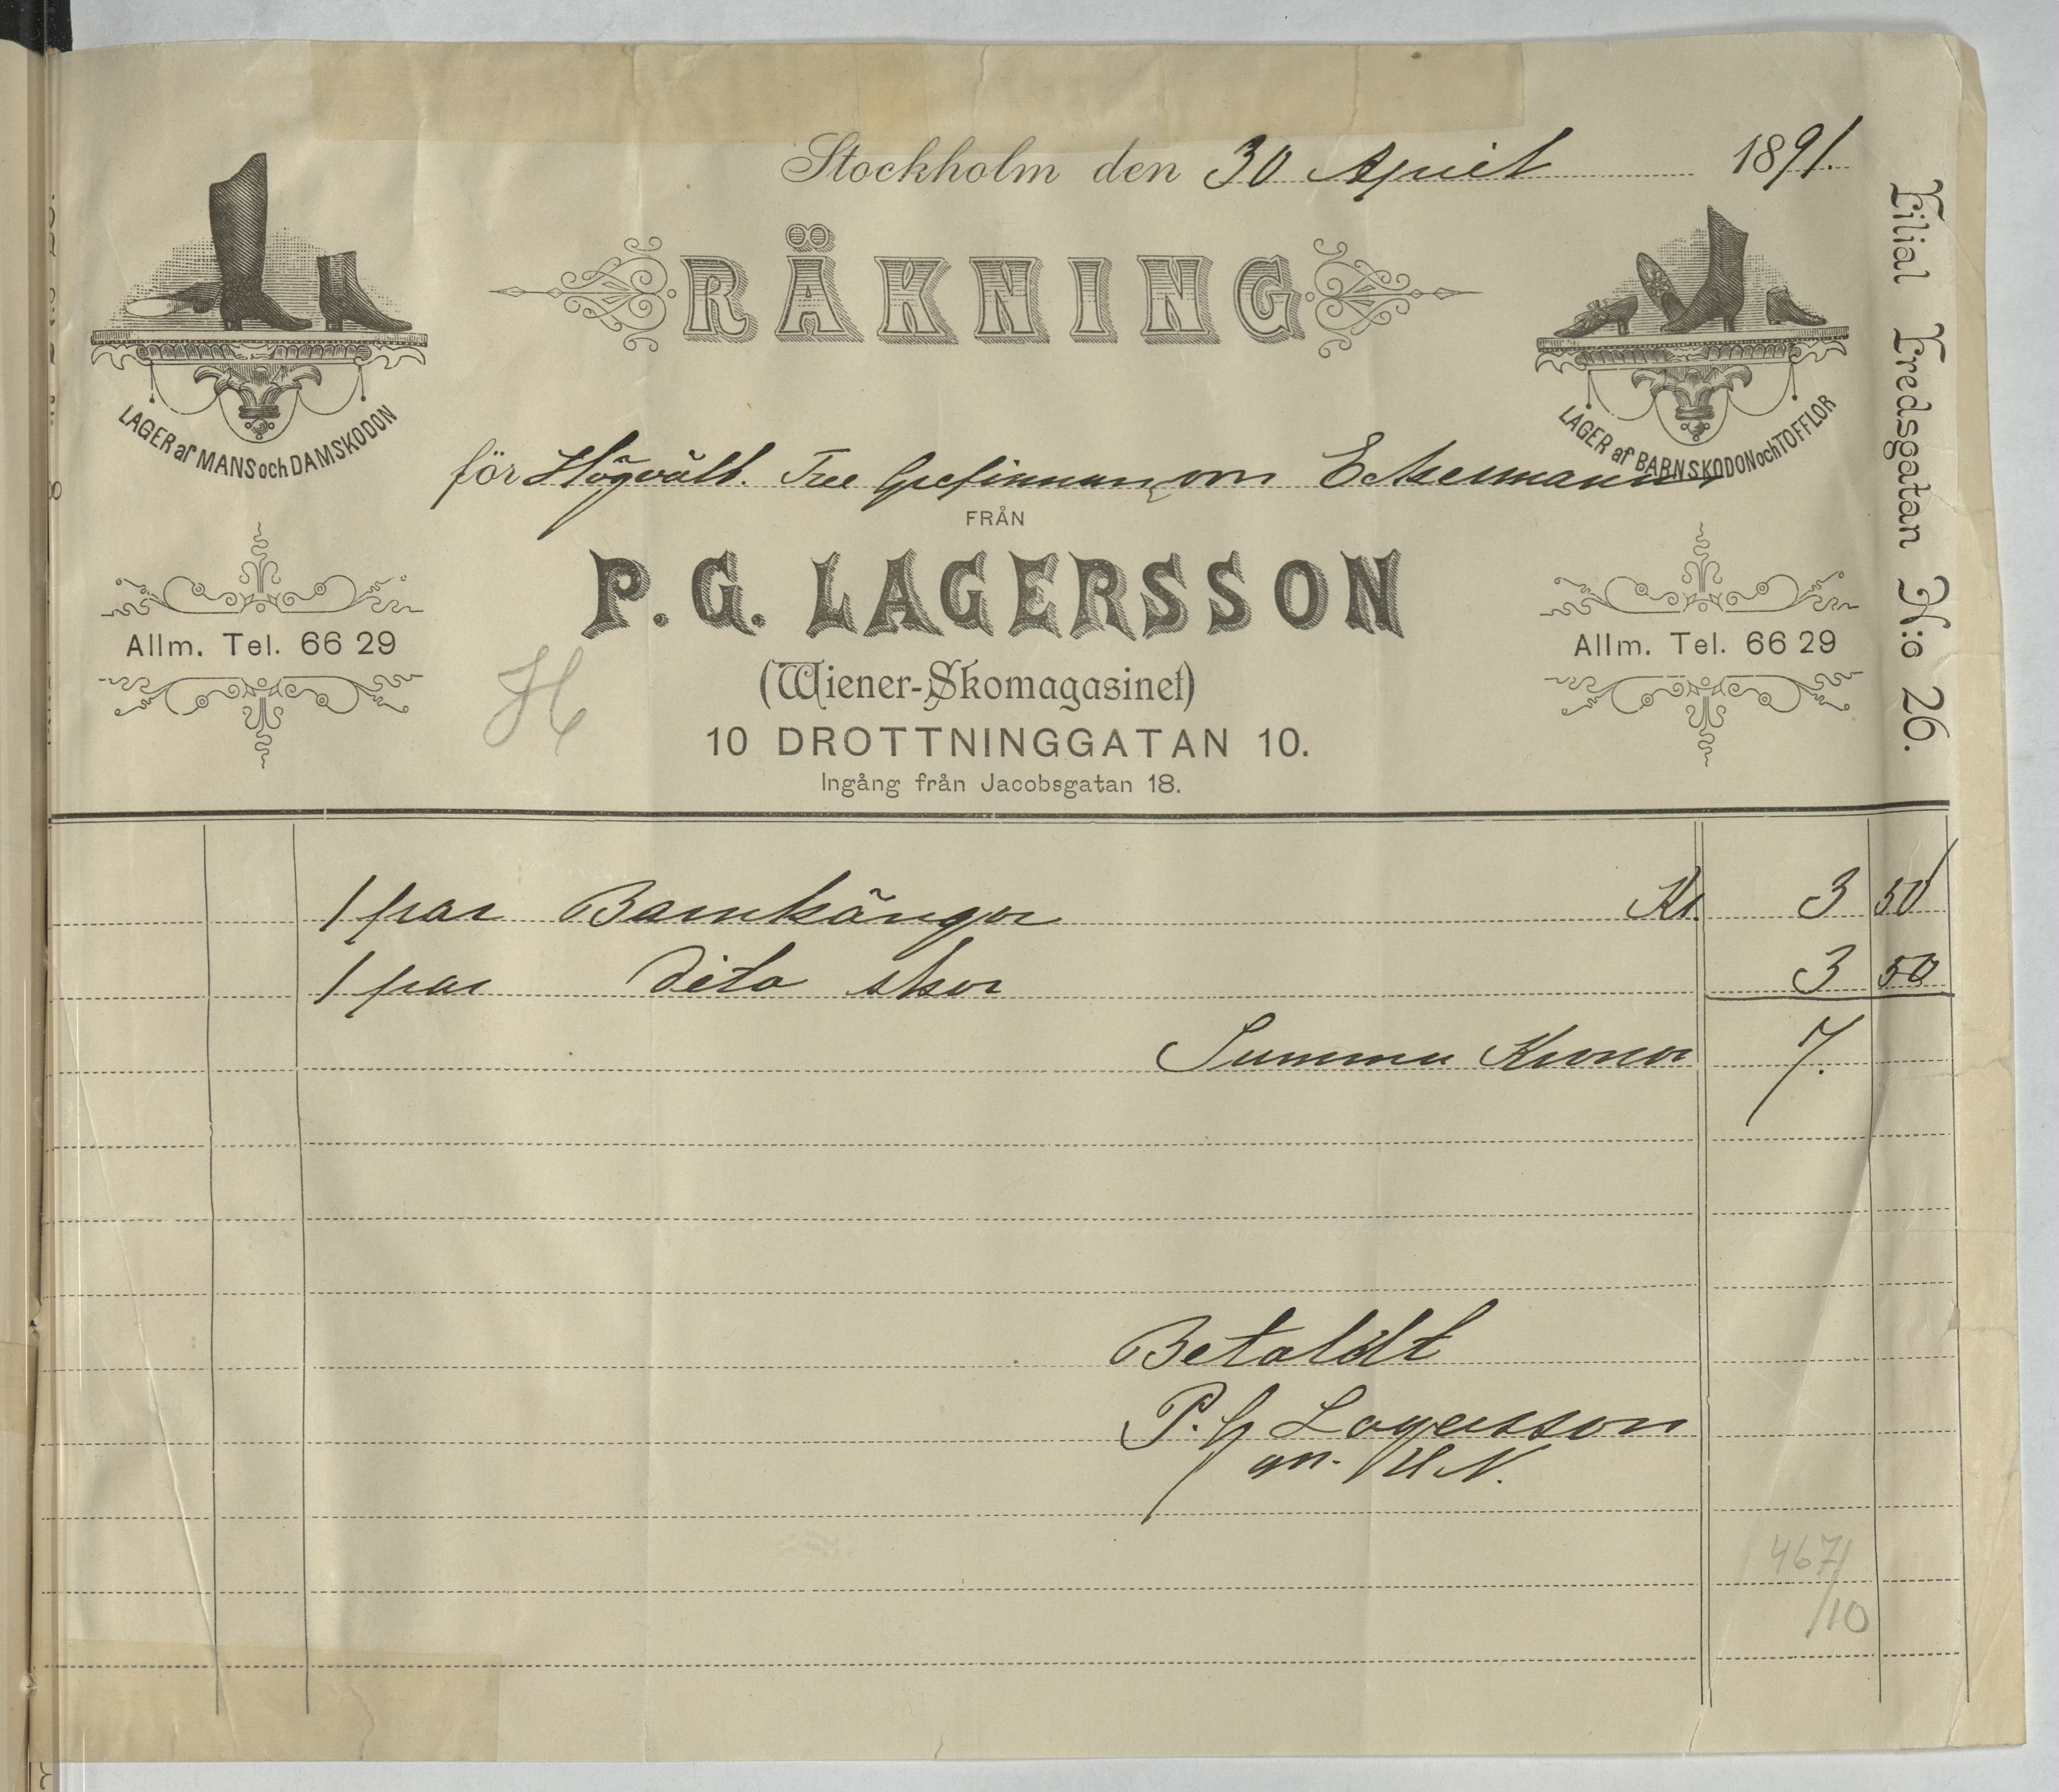 Stockholm den 30 April 1891.
RÄKNING
LAGER af MANS och DAMSKODON
LAGER af BARNSKODON och TOFFLOR
för Högvälb. Fru Grefinnan von Eckermann
FRÅN
P. G. LAGERSSON
(Wiener-Skomagasinet)
10 DROTTNINGGATAN 10.
Ingång från Jacobsgatan 18.
Allm. Tel. 66 29
Allm. Tel. 66 29
Filial Fredsgatan N:o 26.
H
1 par Barnkängor Kr. 3 50
1 par dito skor 3 50
Summa Kronor 7.
Betaldt
P. G Lagersson
467/
/10